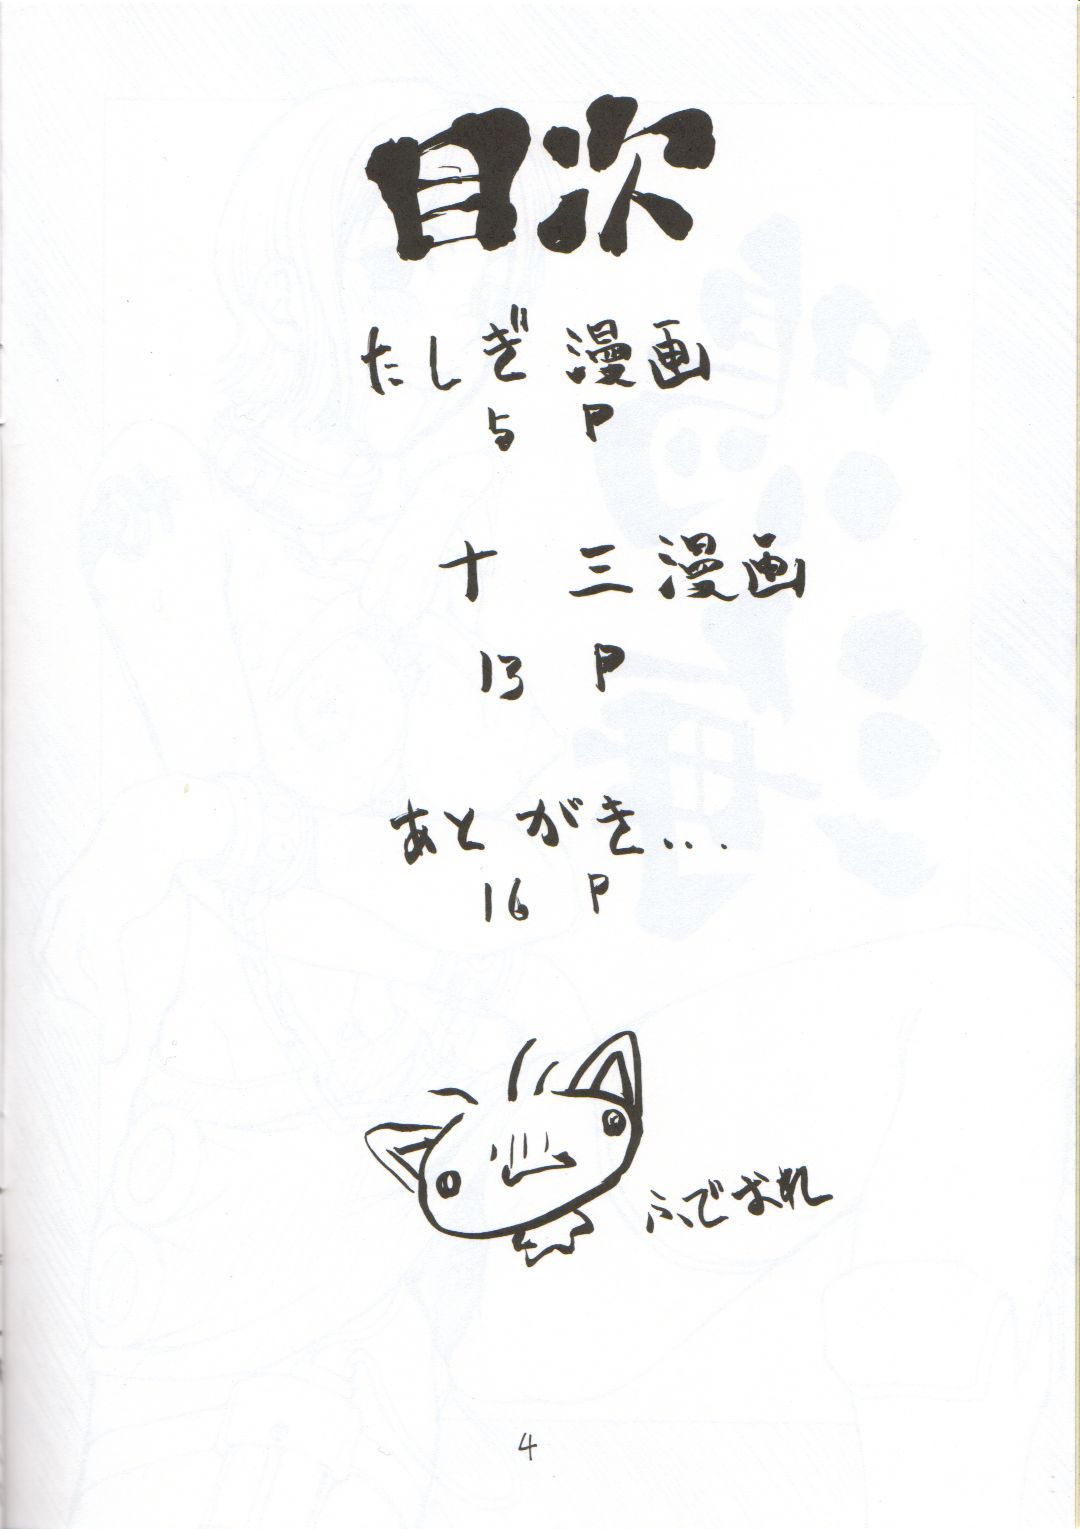 目次
たしぎ漫画
5 P
十 三漫画
13 P
あとがき...
16 P
ふでおれ
4